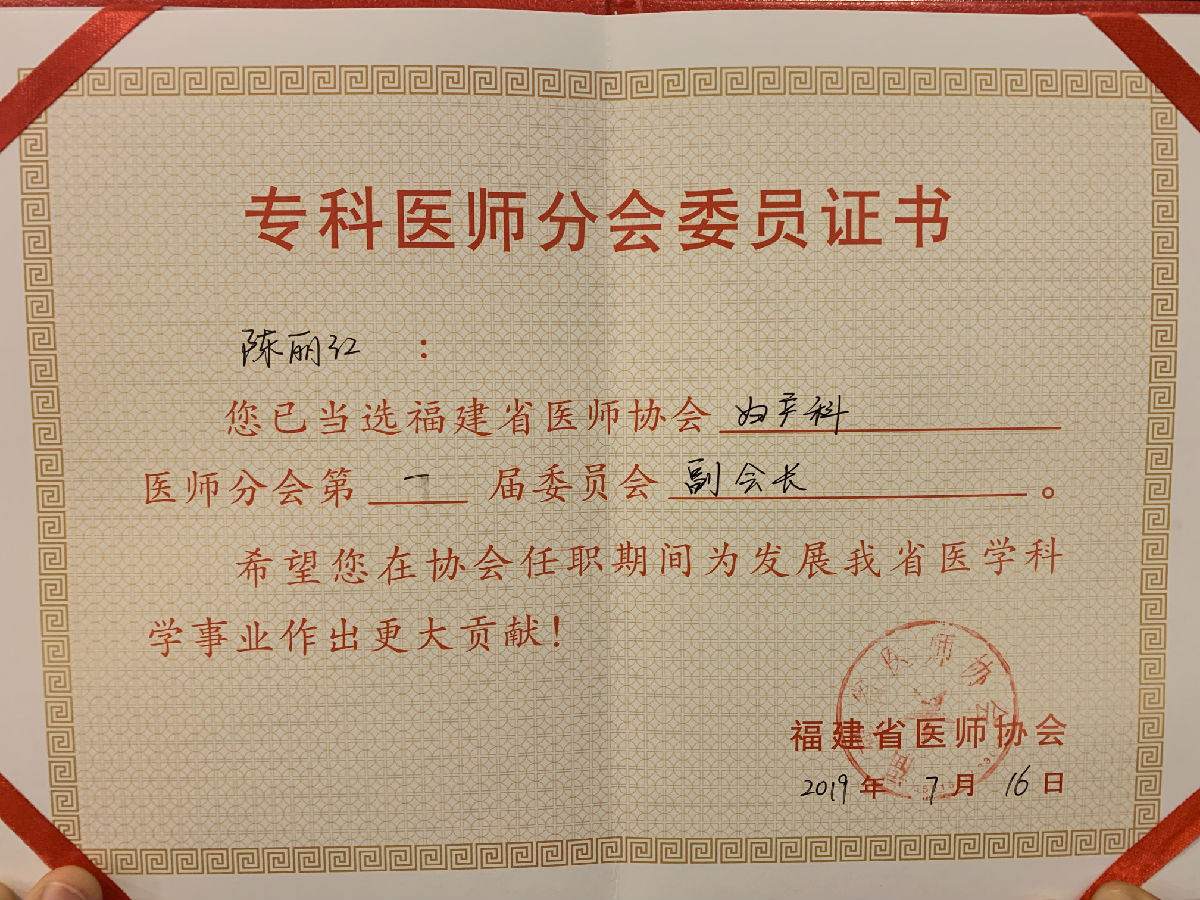 专科医师分会委员证书
陈丽红：
您已当选福建省医师协会 妇产科
医师分会第 一 届委员会 副会长。
希望您在协会任职期间为发展我省医学科
学事业作出更大贡献！
福建省医师协会
福建省医师协会
2019年7月16日